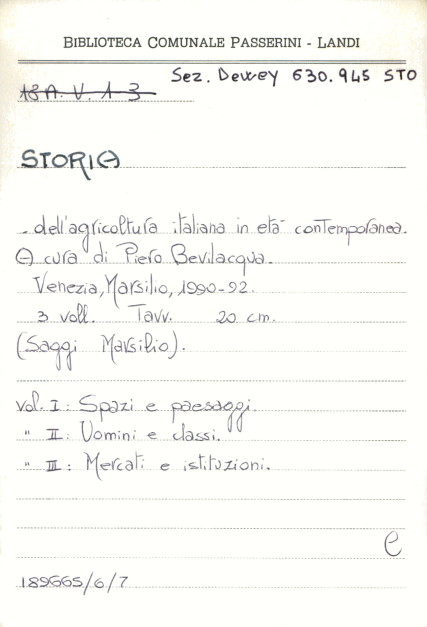 BIBLIOTECA COMUNALE PASSERINI - LANDI
Sez. Dewey 630.945 STO
18A. V. 1 3
STORIA
- dell'agricoltura italiana in età contemporanea.
A cura di Piero Bevilacqua.
Venezia, Marsilio, 1990-92.
3 voll. Tavv. 20 cm.
(Saggi Marsilio).
vol. I: Spazi e paesaggi.
" II: Uomini e classi.
" III: Mercati e istituzioni.
e
189665/6/7